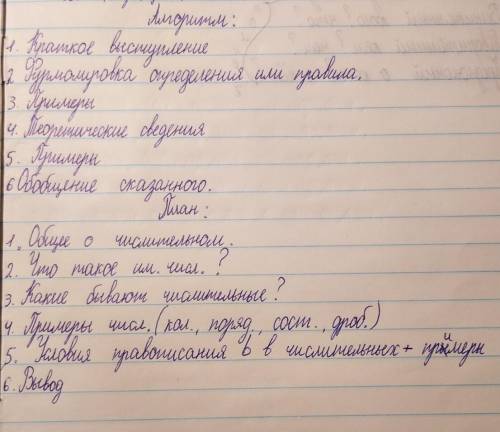 Алгоритм:
1. Краткое выступление
2. Формулировка определения или правила.
3. Примеры
4. Теоретические сведения
5. Примеры
6 Обобщение сказанного.
План:
1. Общее о числительном.
2. Что такое им. числ. ?
3. Какие бывают числительные?
4. Примеры числ. (кол., поряд., сост., дроб.)
5. Условия правописания ь в числительных + примеры
6. Вывод